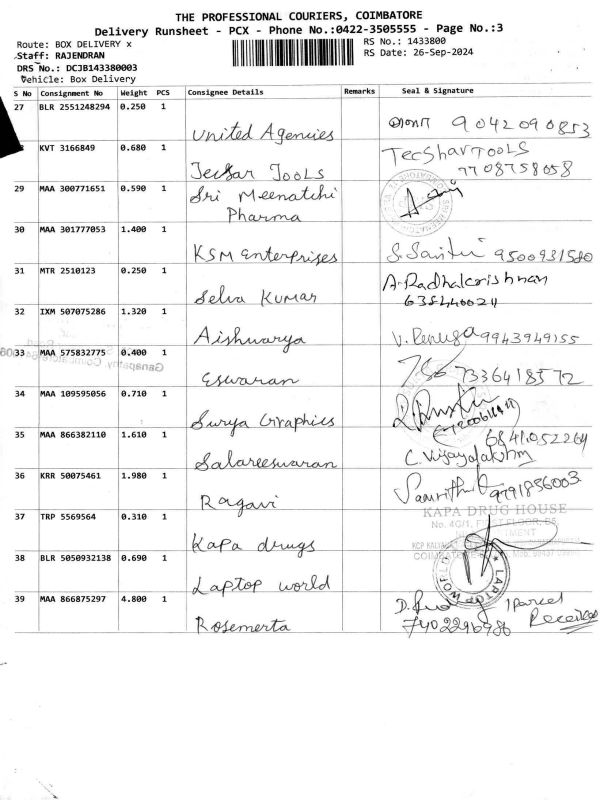 THE PROFESSIONAL COURIERS, COIMBATORE
Delivery Runsheet - PCX - Phone No.:0422-3505555 - Page No.:3
Route: BOX DELIVERY x
Staff: RAJENDRAN
DRS No.: DCJB143380003
Vehicle: Box Delivery
RS No.: 1433800
RS Date: 26-Sep-2024
S No Consignment No Weight PCS Consignee Details Remarks Seal & Signature
27 BLR 2551248294 0.250 1
United Agencies
9042090853
KVT 3166849 0.680 1
Tecshar Tools
TecSharTOOLS
7708758058
29 MAA 300771651 0.590 1
Sri Meenatchi
Pharma
30 MAA 301777053 1.400 1
KSM Enterprises
9500931580
31 MTR 2510123 0.250 1
Selva Kumar
A.Radhakrishnan
32 IXM 507075286 1.320 1
Aishwarya
V. Renuga 9943949155
33 MAA 575832775 0.400 1
Eswaran
7336418572
34 MAA 109595056 0.710 1
Surya Graphics
35 MAA 866382110 1.610 1
Salareeswaran
C. Vijayalakshmi
36 KRR 50075461 1.980 1
Ragavi
9791856003
37 TRP 5569564 0.310 1
Kapa drugs
KAPA DRUG HOUSE
38 BLR 5050932138 0.690 1
Laptop world
LAPTOP WORLD
39 MAA 866875297 4.800 1
Rosemerta
1 Parcel
Received